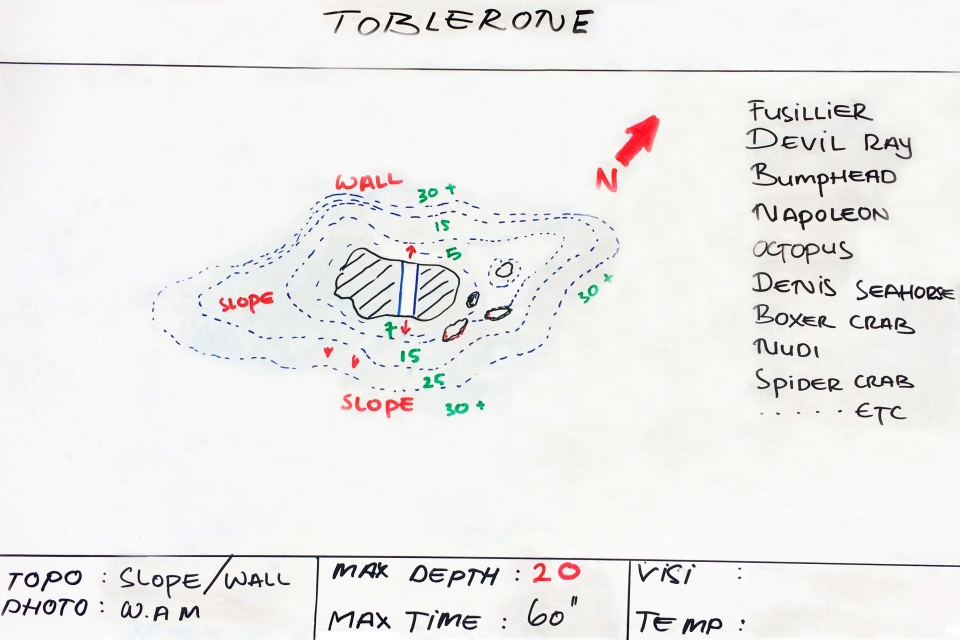 TOBLERONE
N
WALL
30+
15
5
SLOPE
30+
7
15
25
SLOPE
30+
FUSILLIER
DEVIL RAY
BUMPHEAD
NAPOLEON
OCTOPUS
DENIS SEAHORSE
BOXER CRAB
NUDI
SPIDER CRAB
..... ETC
TOPO : SLOPE/WALL
PHOTO : W.A M
MAX DEPTH : 20
MAX TIME : 60"
VISI :
TEMP :